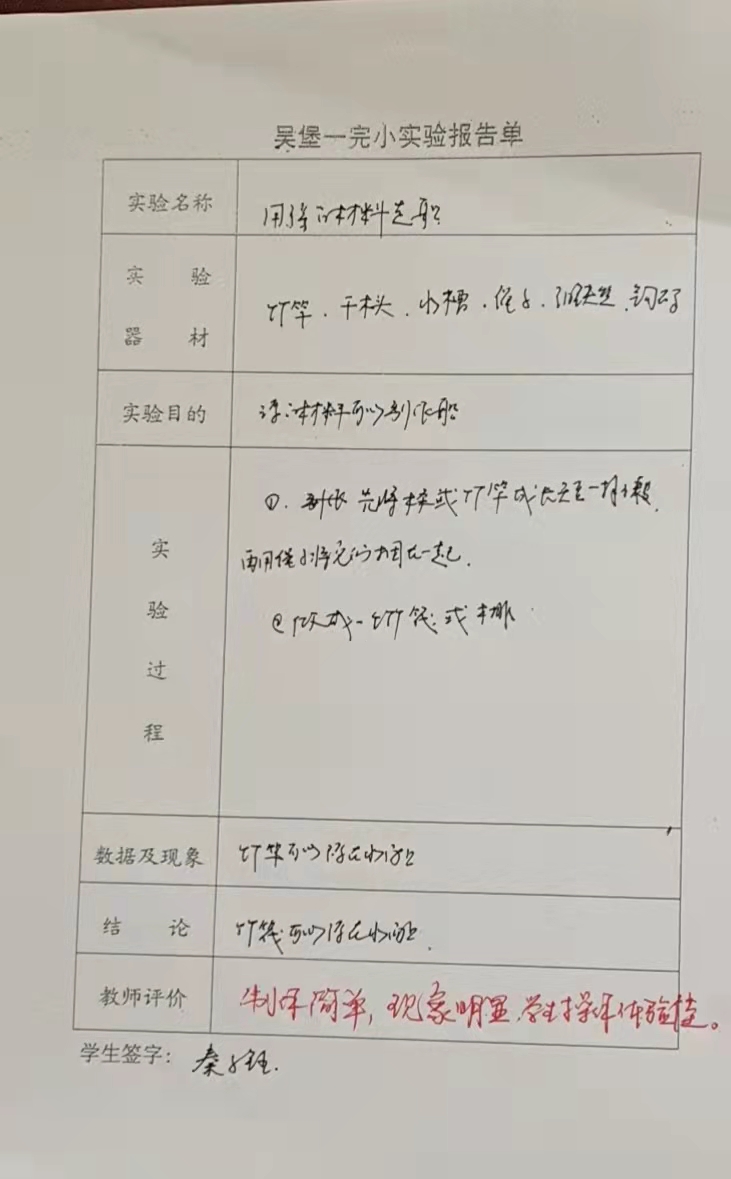 吴堡一完小实验报告单
实验名称 用浮的材料造船
实验器材 竹竿.干木头.水槽.绳子. 钩码
实验目的 浮的材料可以制作船
实验过程 ①. 先将木或竹竿成长一样
再用绳子将它们固在一起.
② 做成一竹筏或木排
数据及现象 竹竿可以浮在水面上
结论 竹筏可以浮在水面上.
教师评价 制作简单,现象明显.学生操作体验佳。
学生签字: 秦